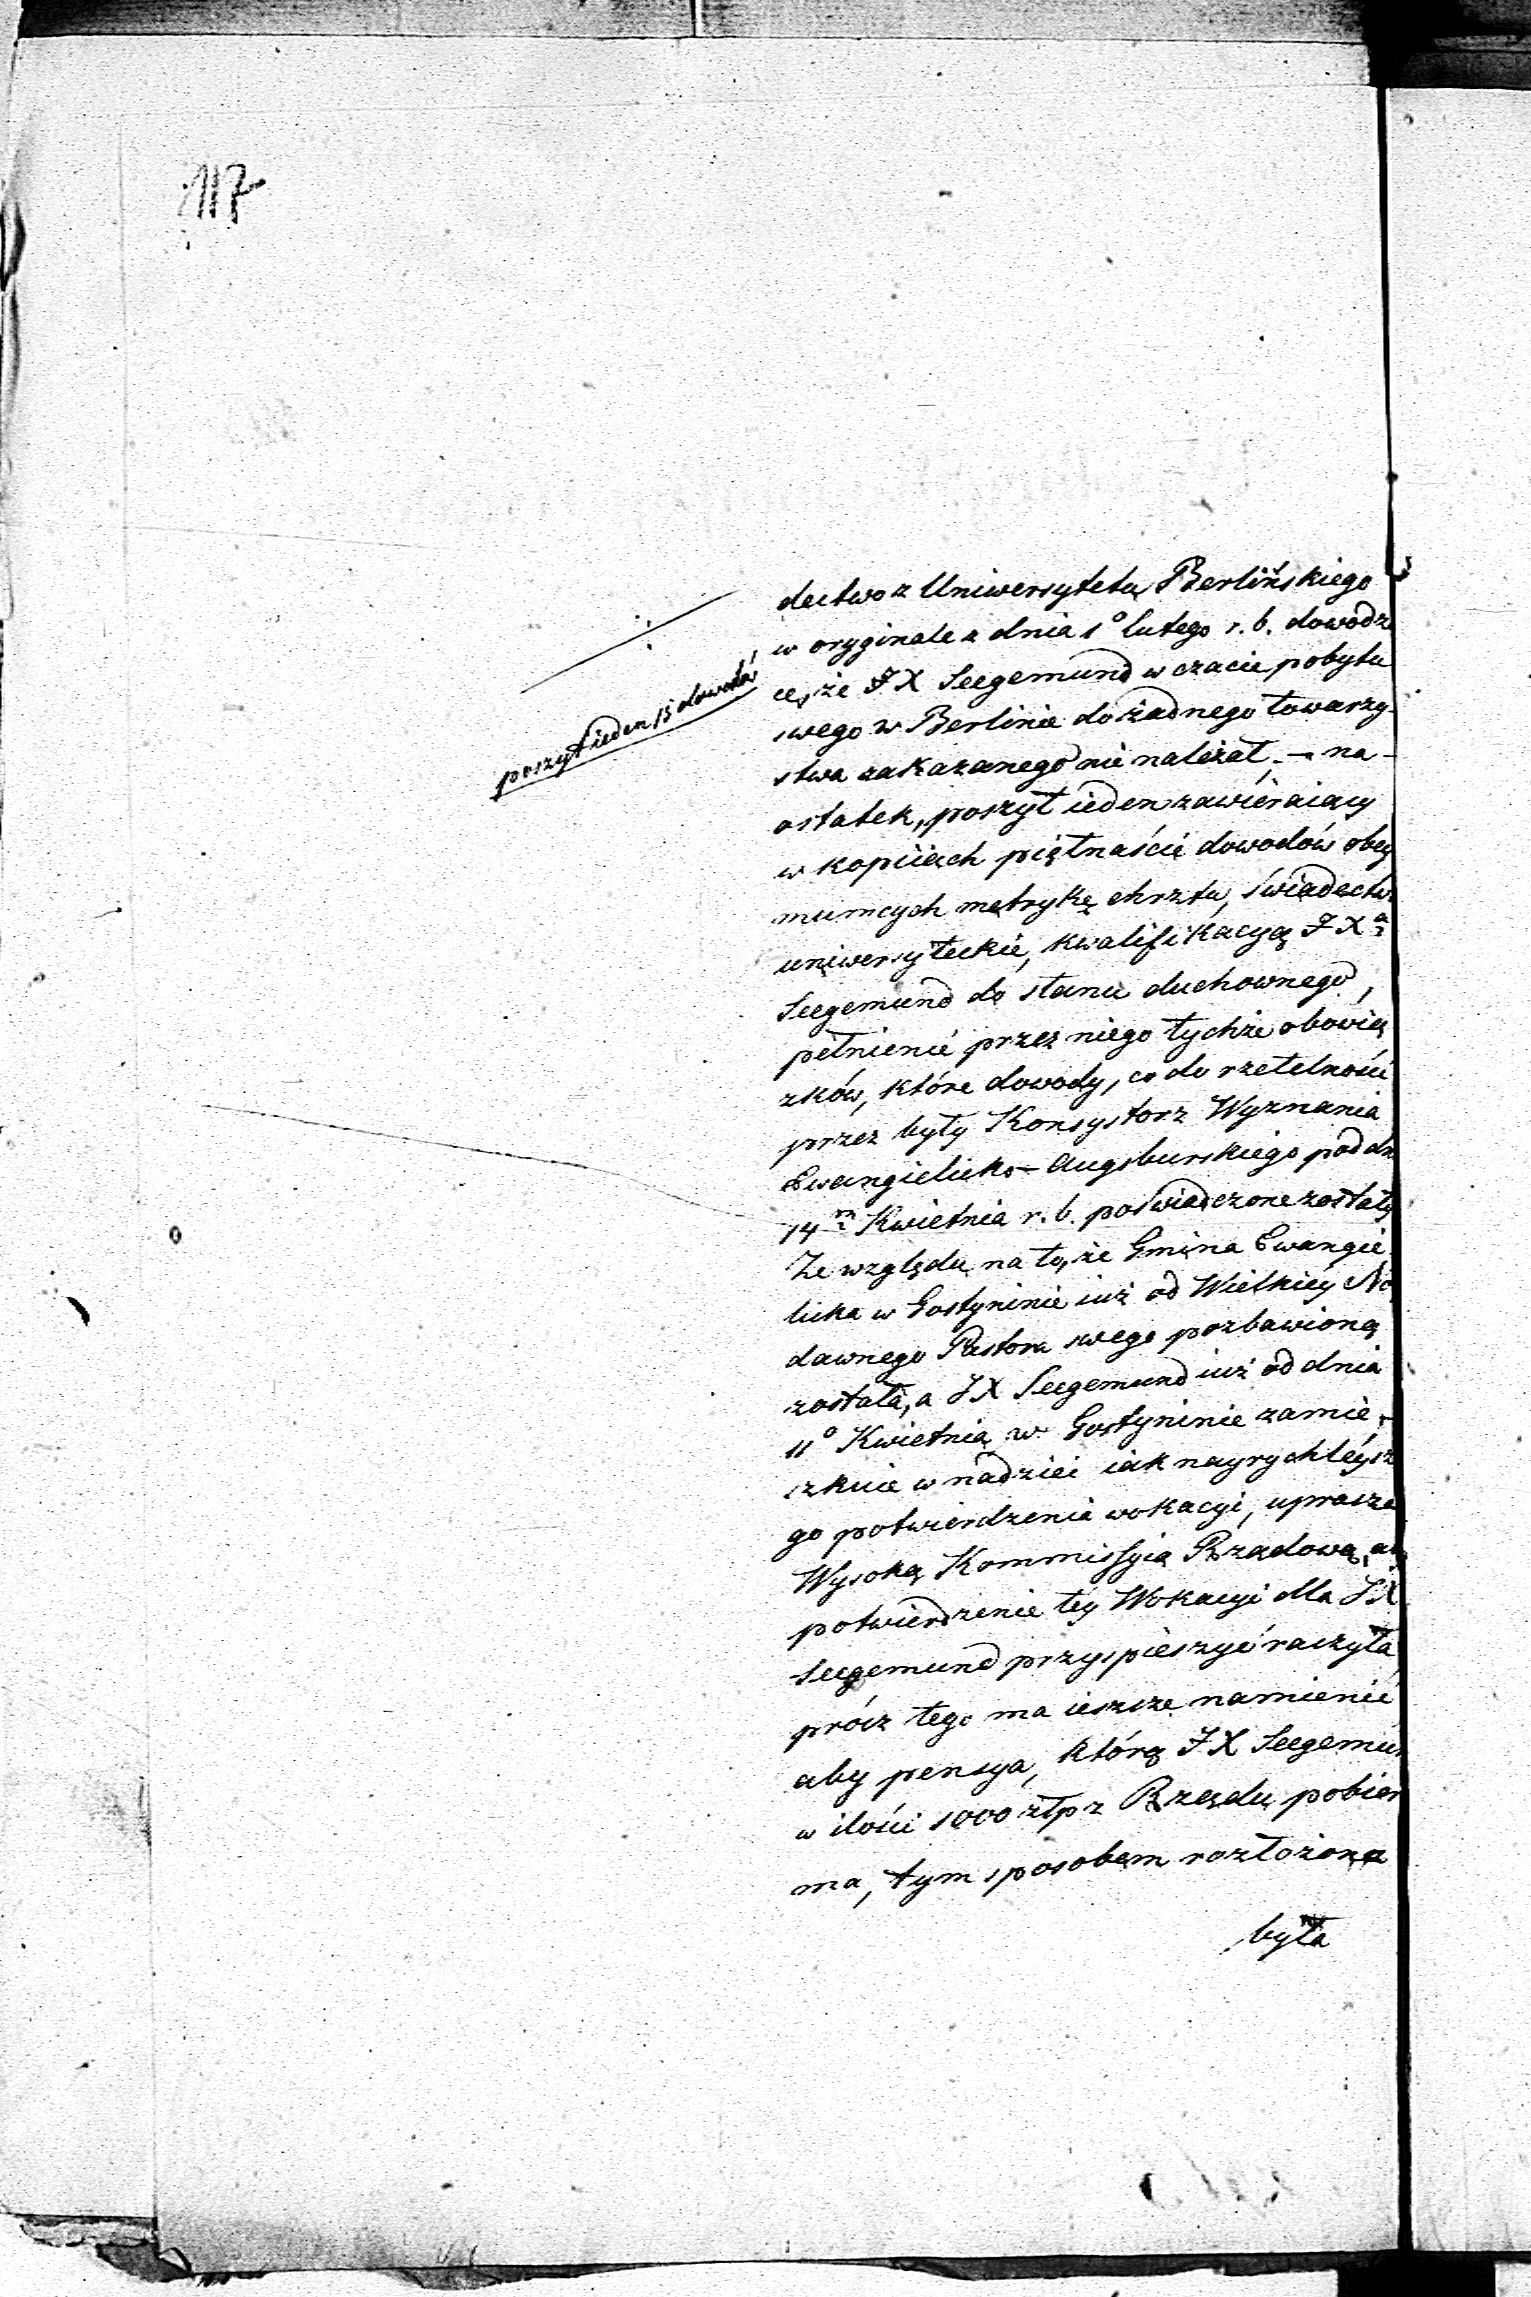 117
poszyt ieden 15 dowodów
dectwo z Uniwersytetu Berlińskiego
w oryginale z dnia 1° lutego r. b. dowodzą
ce, że JX Seegemund w czacie pobytu
swego w Berlinie do żadnego towarzy-
stwa zakazanego nie należał, — na-
ostatek, poszyt ieden zawieraiący
w kopiiach piętnaście dowodów obey
muiących metrykę chrztu, świadectwa
uniwersyteckie, kwalifikacyą JXa
Seegemund do stanu duchownego,
pełnienie przez niego tychże obowią
zków, które dowody, co do rzetelności
przez były Konsystorz Wyznania
Ewangielicko-Augsburskiego pod dn
14m Kwietnia r. b. poświadczone zostały
Ze względu na to, że Gmina Ewangie
licka w Gostyninie iuż od Wielkiey No
dawnego Pastora swego pozbawioną
została, a JX Seegemund iuż od dnia
11° Kwietnia w Gostyninie zamie-
szkuie w nadziei iak nayrychleysze
go potwierdzenia wokacyi, uprasza
Wysoką Kommissyią Rządową, aby
potwierdzenie tey Wokacyi dla JX
Seegemund przyspieszyć raczyła
prócz tego ma ieszcze namienić
aby pensya, którą JX Seegemun
w ilości 1000 złp z Rządu pobier
ma, tym sposobem rozłożona
była